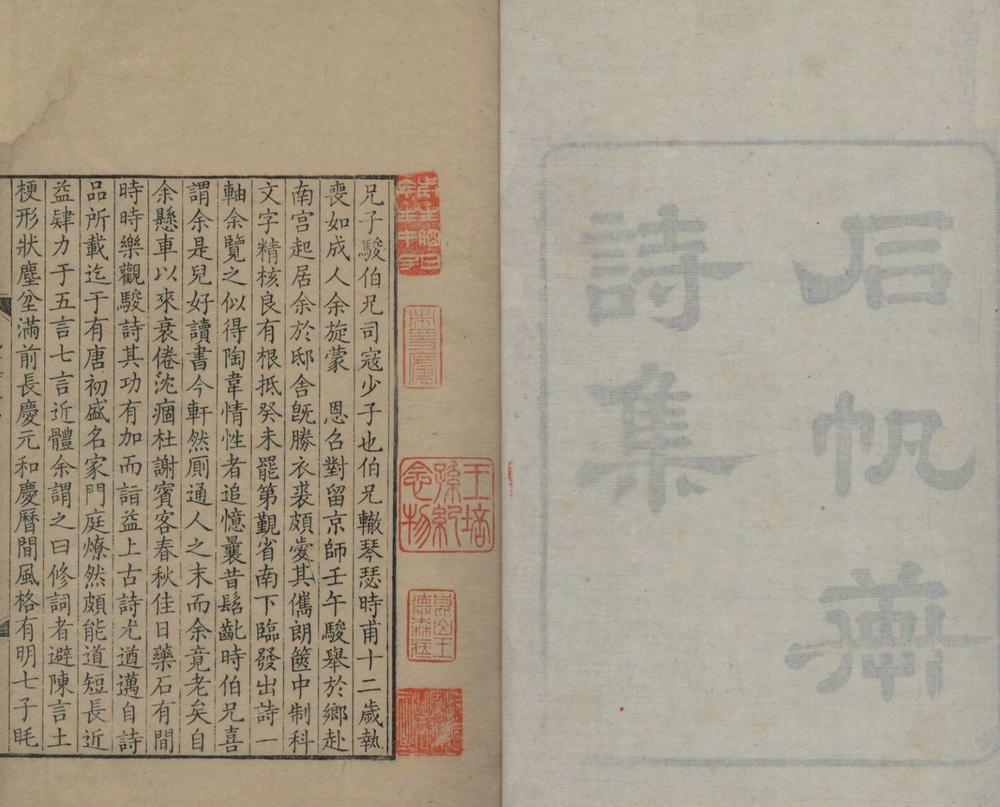 石帆齋
詩集
兄子駿伯兄司寇少子也伯兄轍琴瑟時甫十二歲執
喪如成人余旋蒙 恩召對留京師壬午駿舉於鄉赴
南宮起居余於邸舍旣勝衣裘頗愛其儁朗篋中制科
文字精核良有根抵癸未罷第覲省南下臨發出詩一
軸余覽之似得陶韋情性者追憶曩昔髫齔時伯兄喜
謂余是兒好讀書今軒然厠通人之末而余竟老矣自
余懸車以來衰倦沈痼杜謝賓客春秋佳日藥石有間
時時樂觀駿詩其功有加而詣益上古詩尤遒邁自詩
品所載迄于有唐初盛名家門庭燎然頗能道短長近
益肆力于五言七言近體余謂之曰修詞者避陳言土
梗形狀塵坌滿前長慶元和慶曆間風格有明七子眊